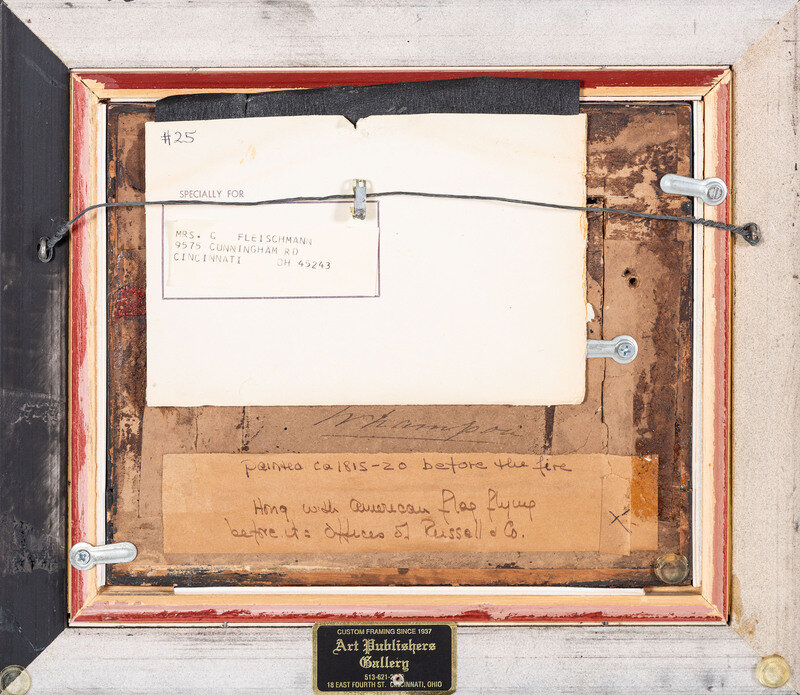 #25
SPECIALLY FOR
MRS. C FLEISCHMANN
9575 CUNNINGHAM RD
CINCINNATI OH 45243
Whampoa
painted ca 1815-20 before the fire
Hong with American flag flying
before its offices of Russell & Co.
X
CUSTOM FRAMING SINCE 1937
Art Publishers
Gallery
513-621-2
18 EAST FOURTH ST. CINCINNATI, OHIO